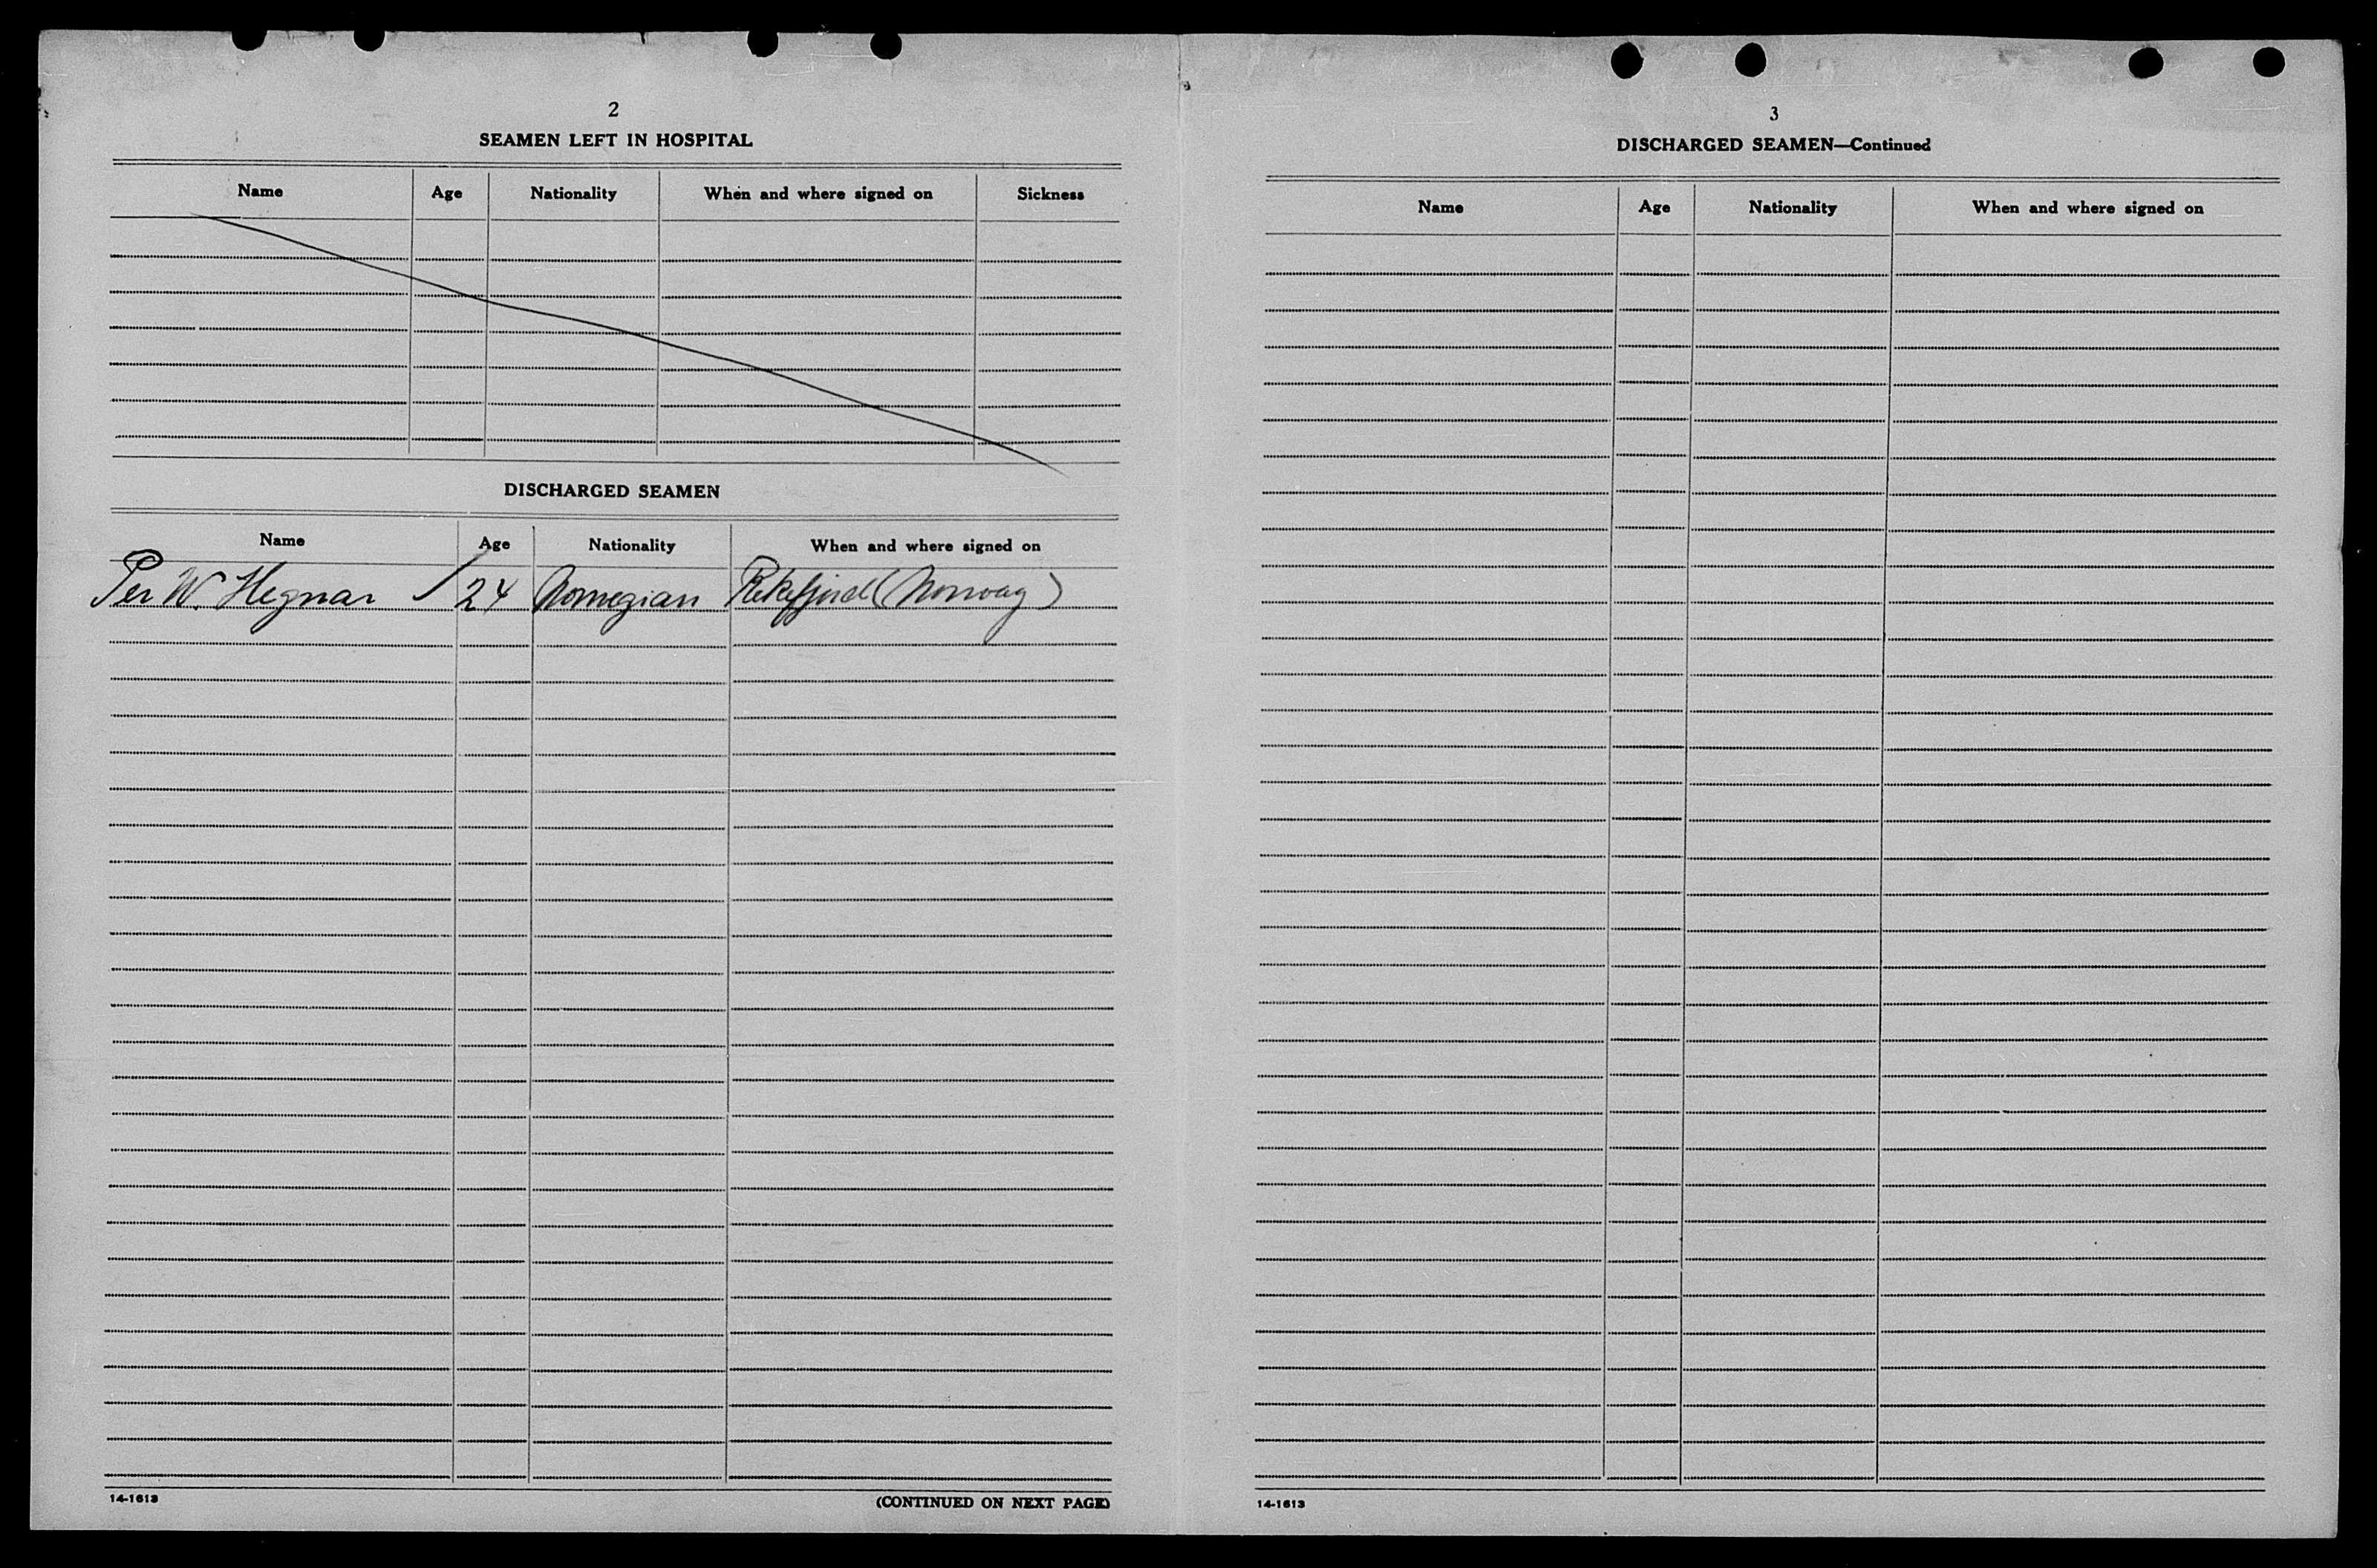 2
SEAMEN LEFT IN HOSPITAL
Name Age Nationality When and where signed on Sickness
DISCHARGED SEAMEN
Name Age Nationality When and where signed on
Per W. Hegnar 24 Norwegian Rekefjord (Norway)
14-1613 (CONTINUED ON NEXT PAGE)
3
DISCHARGED SEAMEN—Continued
Name Age Nationality When and where signed on
14-1613